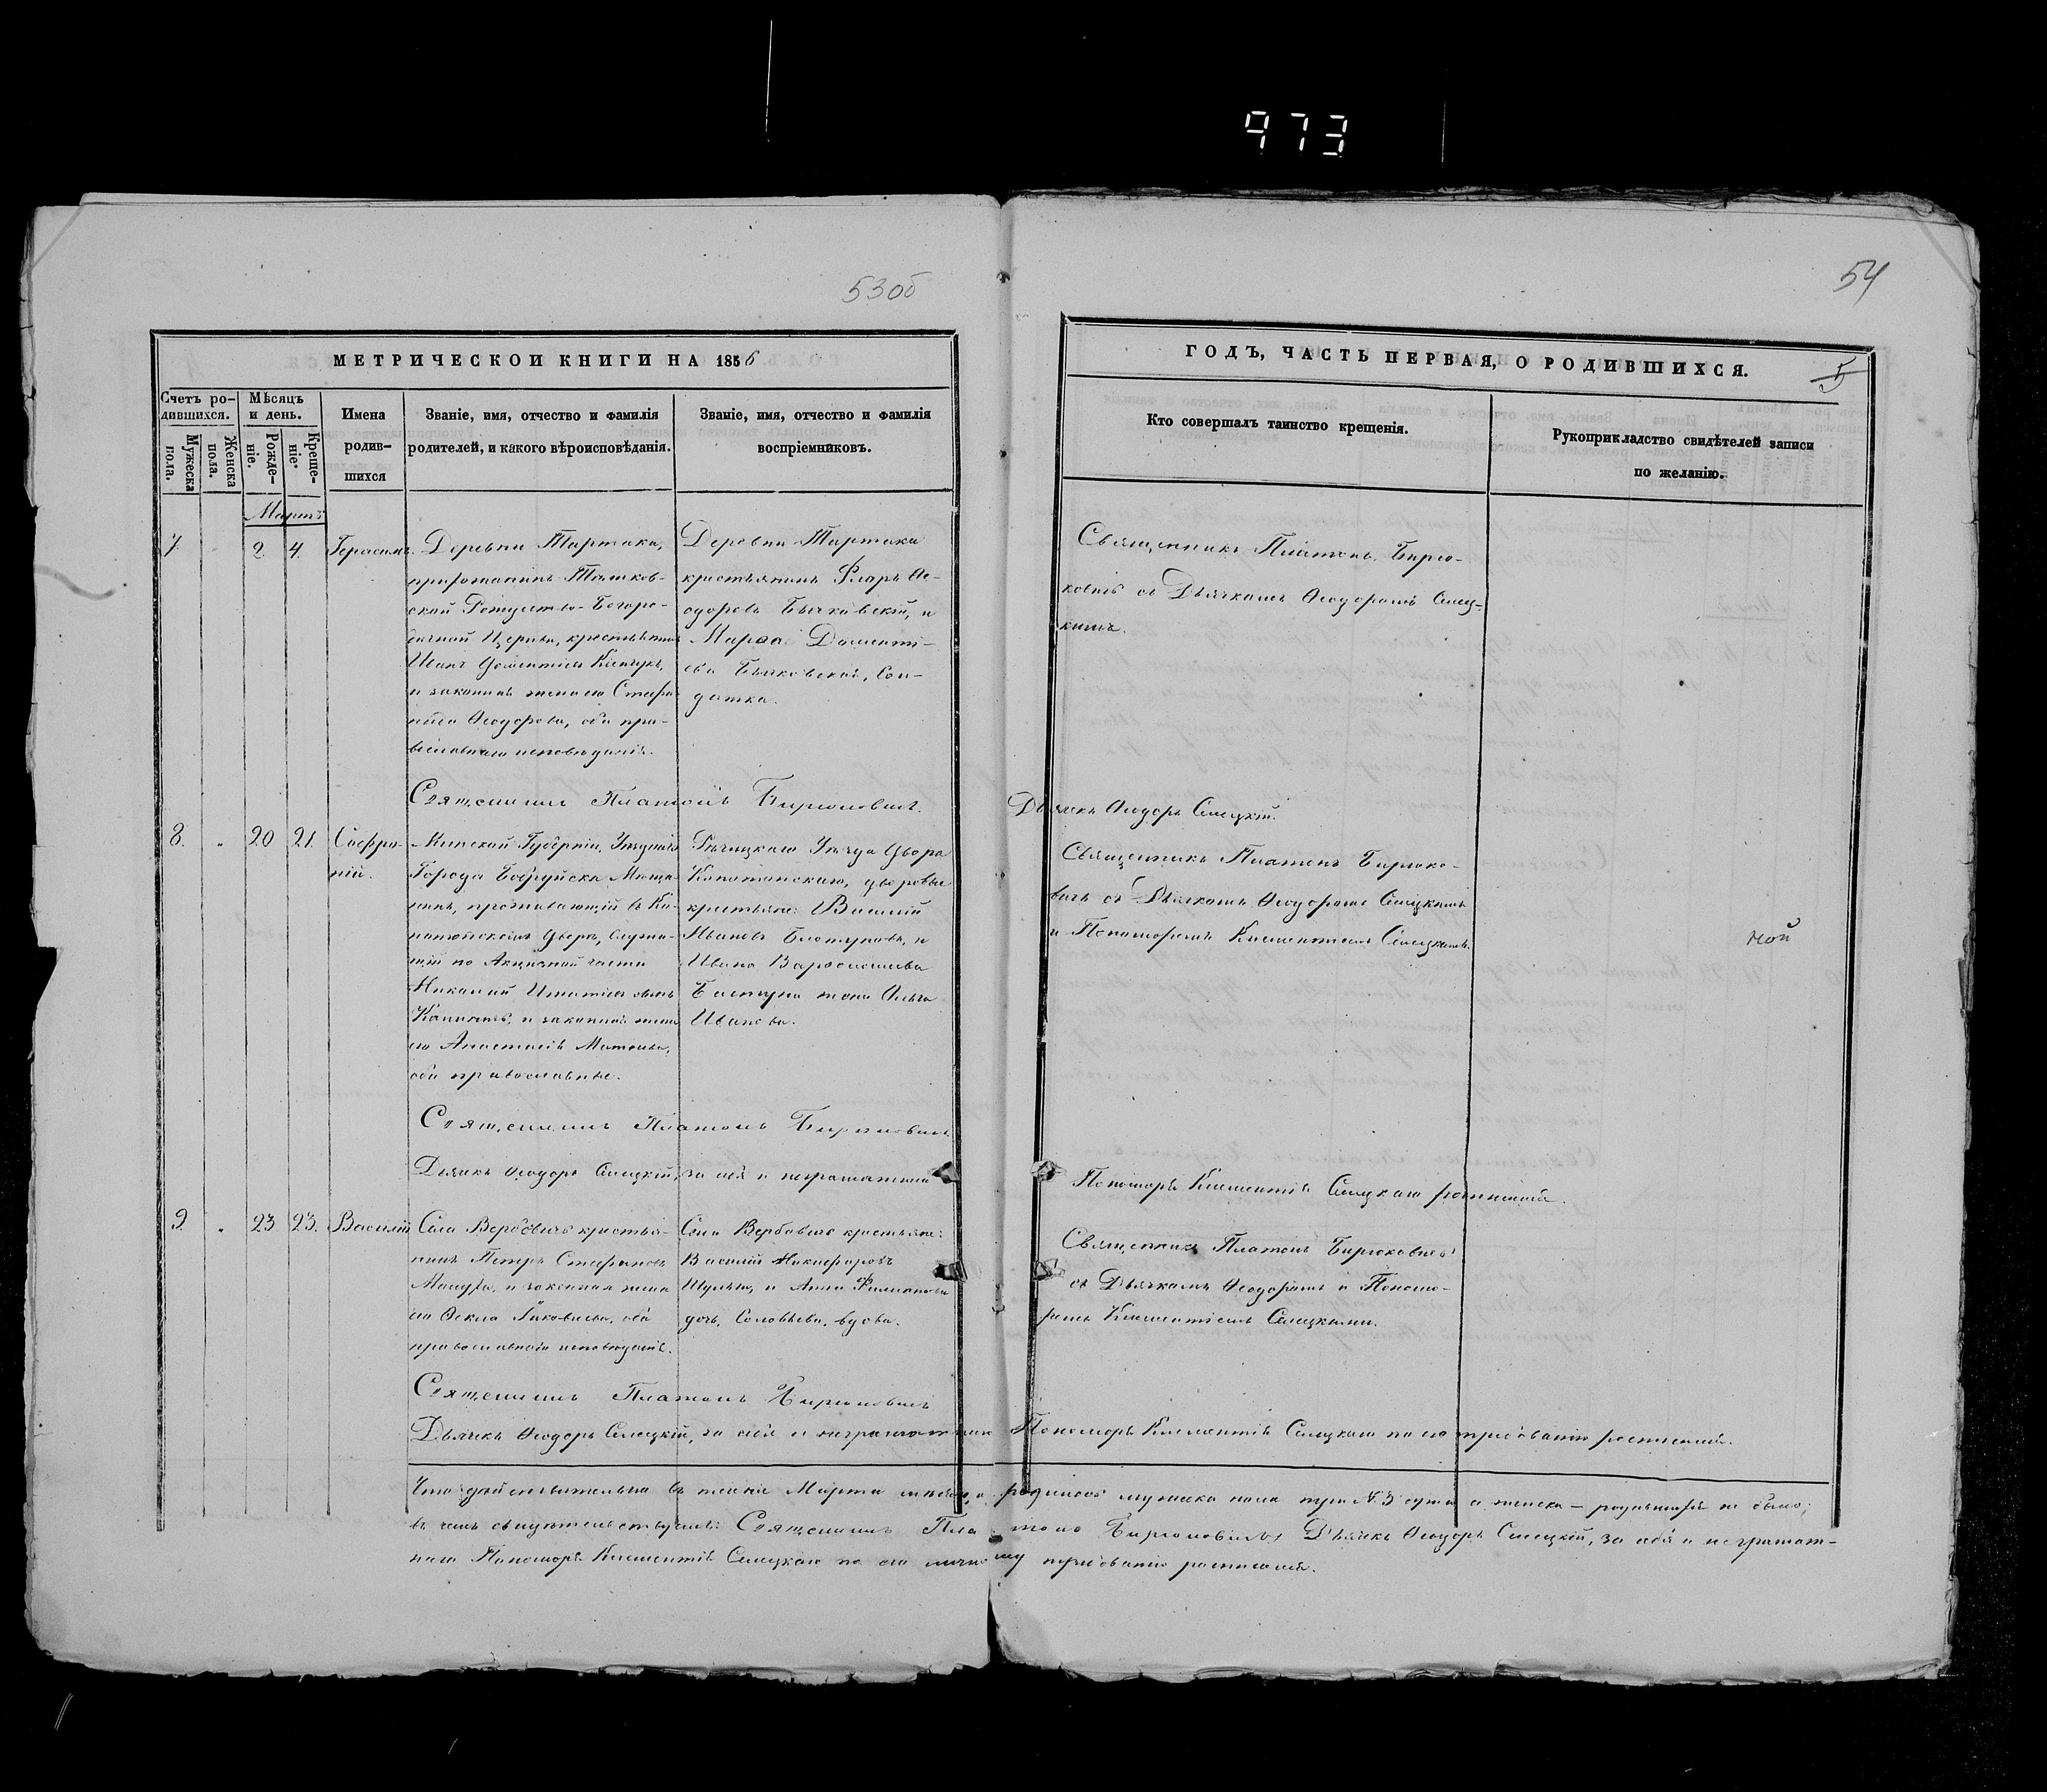 973
53об
54
МЕТРИЧЕСКОИ КНИГИ НА 1856
ГОДЪ, ЧАСТЬ ПЕРВАЯ, О РОДИВШИХСЯ.
5
Счетъ ро-
дившихся.
Мужеска
пола.
Женска
пола.
Мѣсяцъ
и день.
Рожде-
ніе.
Креще-
ніе.
Имена
родив-
шихся
Званіе, имя, отчество и фамилія
родителей, и какого вѣроисповѣданія.
Званіе, имя, отчество и фамилія
воспріемниковъ.
Кто совершалъ таинство крещенія.
Рукоприкладство свидѣтелей записи
по желанію.
Мартъ
7. 2. 4. Герасимъ.
Деревни Тартака,
прихожанинъ
ской Рождество-Богоро-
дичной Церкви, крестьянинъ
Иванъ
и законная жена его Стефа-
нида Ѳеодорова, оба пра-
вославнаго исповѣданія.
Деревни Тартака
крестьянинъ Флоръ Ѳе-
одоровъ Бычковскій, и
Марѳа Доменті-
ева Бычковская, Сол-
датка.
Священникъ Платонъ Бирю-
ковичь съ Дьячкомъ Ѳеодоромъ Слец-
кимъ.
Священникъ Платонъ Бирюковичь.
Дьячекъ Ѳеодоръ Слецкій.
8. „ 20 21. Софро-
ній.
Минской Губерніи, Уѣзднаго
Города Бобруйска Мѣща-
нинъ, проживающій въ Ка-
дворѣ, служа-
щій по Акцизной части
Николай Игнатіевъ сынъ
и законная жена
его Анастасія
оба православные.
Рѣчицкаго Уѣзда Двора
дворовые
крестьяне: Василій
Ивановъ и
Ивана
жена Ольга
Иванова.
Священникъ Платонъ Бирюко-
вичь съ Дьячкомъ Ѳеодоромъ Слецкимъ
и Пономоремъ Климентіемъ Слецкимъ.
мой
Священникъ Платонъ Бирюковичь
Дьячекъ Ѳеодоръ Слецкій, за себя и неграматнаго
Пономоря Климентія Слецкаго росписался.
9 „ 23 23. Василій
Села Вербовичь крестья-
нинъ Петръ Стефановъ
и законная жена
его Ѳекла Яковлева, оба
православнаго исповѣданія.
Села Вербовичь крестьяне:
Василій Никифоровъ
и Анна Филимонова
дочь, Соловьева, вдова.
Священникъ Платонъ Бирюковичь
съ Дьячкомъ Ѳеодоромъ и Пономо-
ремъ Климентіемъ Слецкими.
Священникъ Платонъ Бирюковичь
Дьячекъ Ѳеодоръ Слецкій, за себя и неграматнаго Пономоря Климентія Слецкаго по его требованію росписался.
Что дѣйствительно въ теченіе Марта мѣсяца родилось мужеска пола три № 3 души а женска — родившихся не было,
въ чемъ свидѣтельствуемъ: Священникъ Платонъ Бирюковичь, Дьячекъ Ѳеодоръ Слецкій, за себя и неграмат-
наго Пономоря Климентія Слецкаго по его личному требованію росписался.